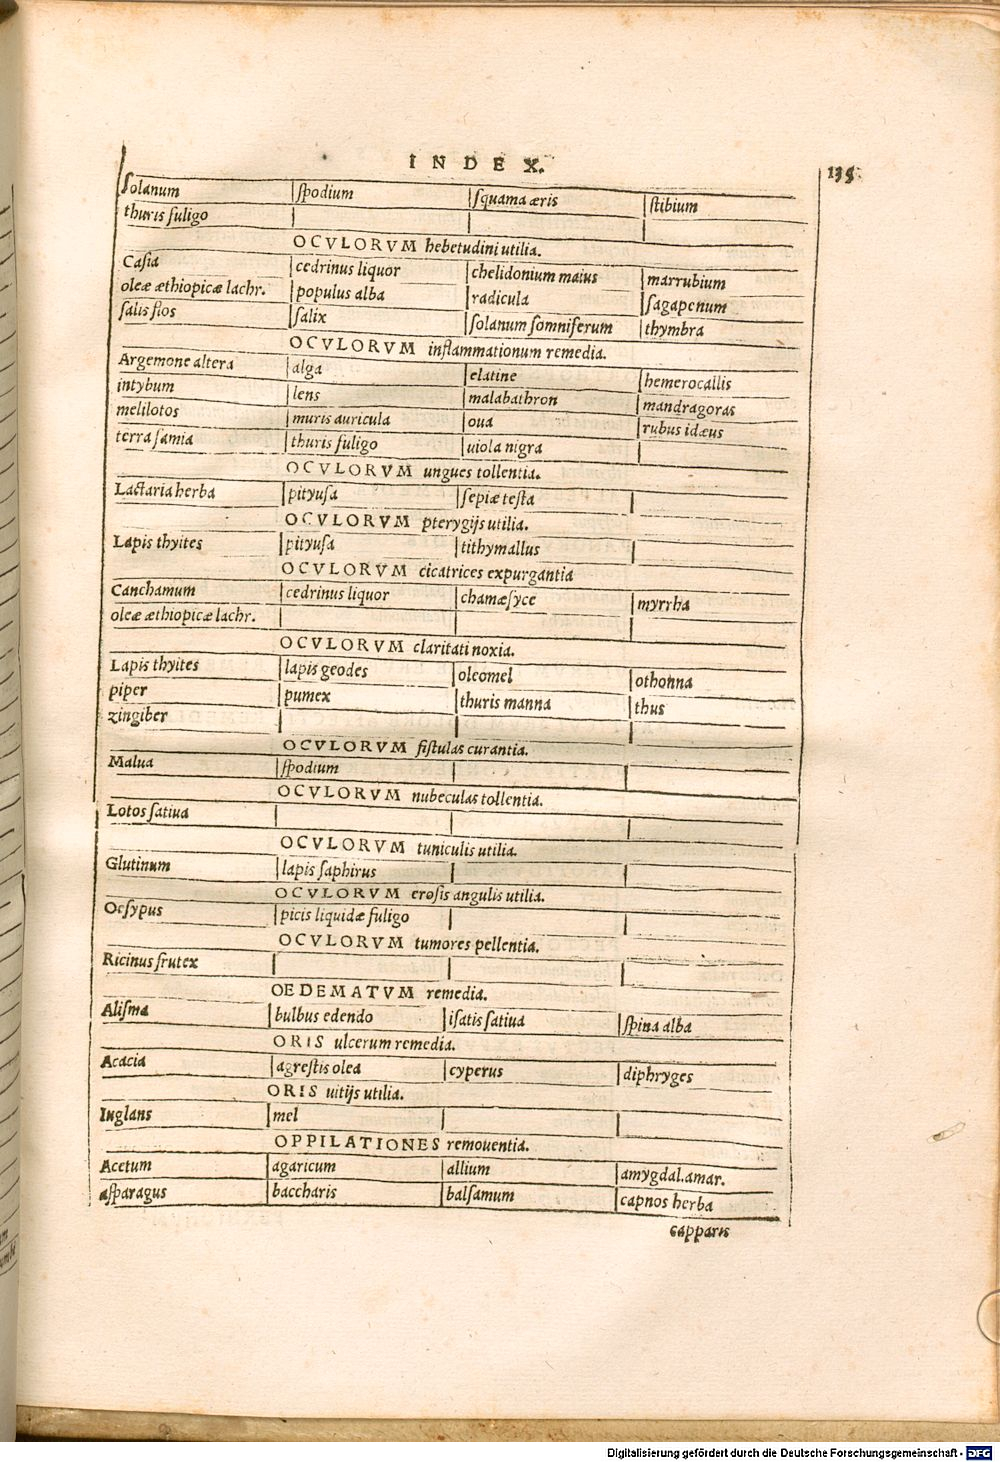 INDEX. 135
ſolanum ſpodium ſquama æris ſtibium
thuris fuligo
OCVLORVM hebetudini utilia.
Caſia cedrinus liquor chelidonium maius marrubium
oleæ æthiopicæ lachr. populus alba radicula ſagapenum
ſalis flos ſalix ſolanum ſomniferum thymbra
OCVLORVM inflammationum remedia.
Argemone altera alga elatine hemerocallis
intybum lens malabathron mandragoras
melilotos muris auricula oua rubus idæus
terra ſamia thuris fuligo uiola nigra
OCVLORVM ungues tollentia.
Lactaria herba pityuſa ſepiæ teſta
OCVLORVM pterygijs utilia.
Lapis thyites pityuſa tithymallus
OCVLORVM cicatrices expurgantia
Canchamum cedrinus liquor chamæſyce myrrha
oleæ æthiopicæ lachr.
OCVLORVM claritati noxia.
Lapis thyites lapis geodes oleomel othonna
piper pumex thuris manna thus
zingiber
OCVLORVM fiſtulas curantia.
Malua ſpodium
OCVLORVM nubeculas tollentia.
Lotos ſatiua
OCVLORVM tuniculis utilia.
Glutinum lapis ſaphirus
OCVLORVM eroſis angulis utilia.
Oeſypus picis liquidæ fuligo
OCVLORVM tumores pellentia.
Ricinus frutex
OEDEMATVM remedia.
Aliſma bulbus edendo iſatis ſatiua ſpina alba
ORIS ulcerum remedia.
Acacia agreſtis olea cyperus diphryges
ORIS uitijs utilia.
Iuglans mel
OPPILATIONES remouentia.
Acetum agaricum allium amygdal.amar.
aſparagus baccharis balſamum capnos herba
capparis
Digitalisierung gefördert durch die Deutsche Forschungsgemeinschaft - DFG